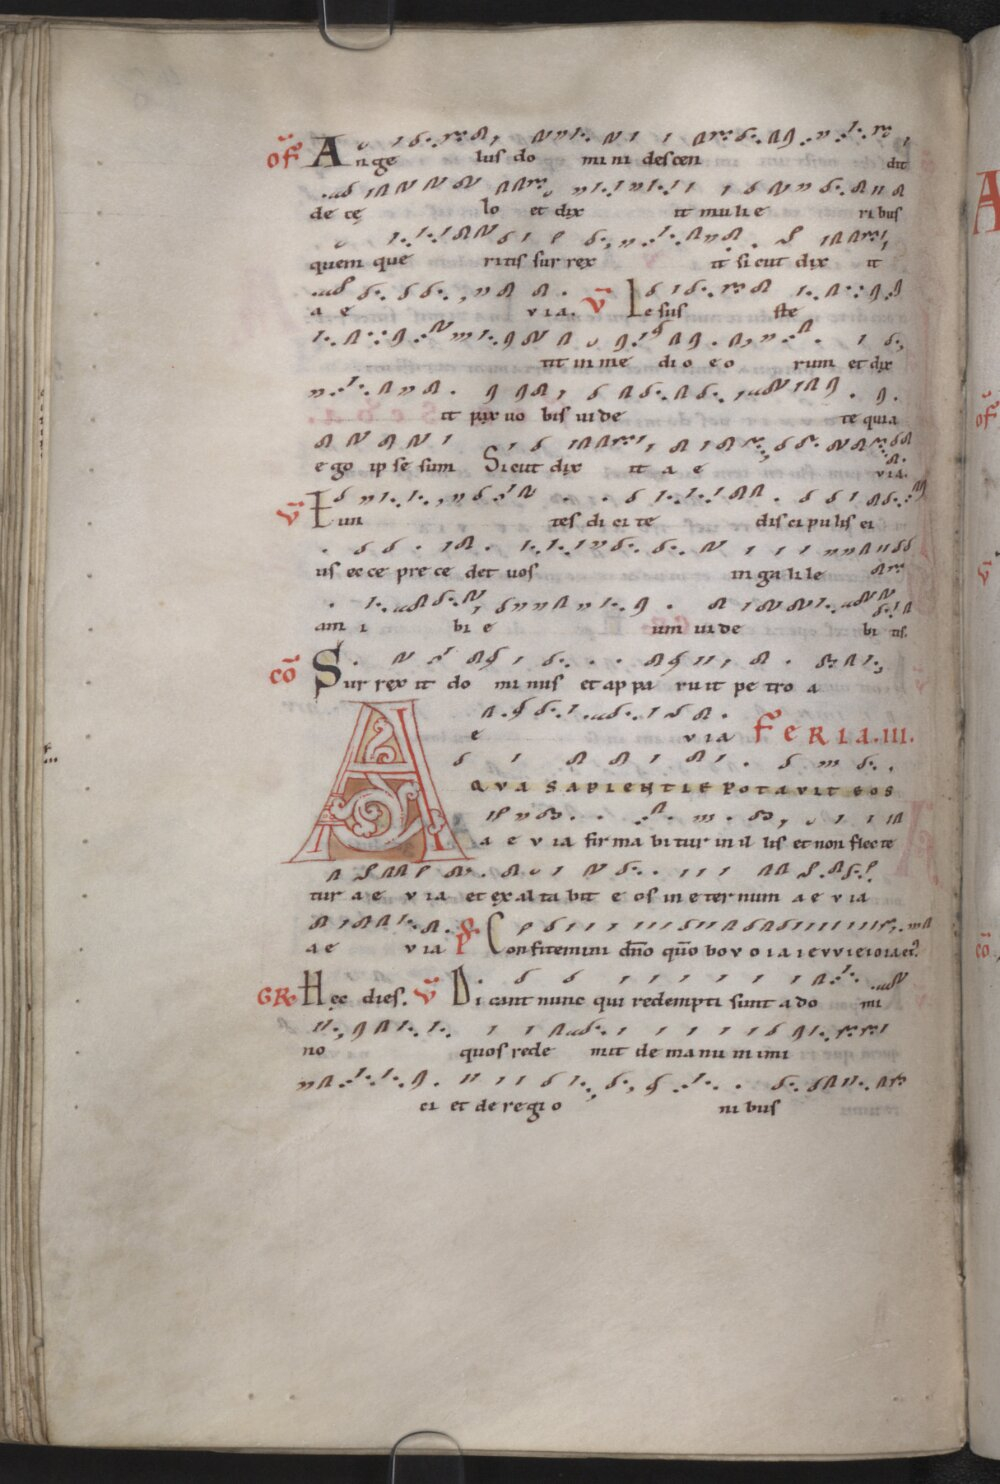 Of Ange lus do mi ni descen dit
de cę lo et dix it mulie ribus
quem que ritis surrex it sicut dix it
a e via. V Iesus ste
tit in me dio eo rum et dix
it pax vo bis vide te quia
ego ipse sum Sicut dix it a e via.
V Eun tes dicite discipulis ei
us ecce precedet vos in galile
am i bi e um vide bi tis.
Co Surrexit do minus et appa ruit petro a
e via FERIA.III.
AQVA SAPIENTIE POTAVIT EOS
a e via firmabitur in il lis et non flecte
tur a e via et exaltabit eos in eternum a e via
a e via P Confitemini dño qūo bo v o i a i e v v i e i o i a et
GR Hęc dies. V Dicant nunc qui redempti sunt a do mi
no quos rede mit de manu inimi
ci et de regio nibus